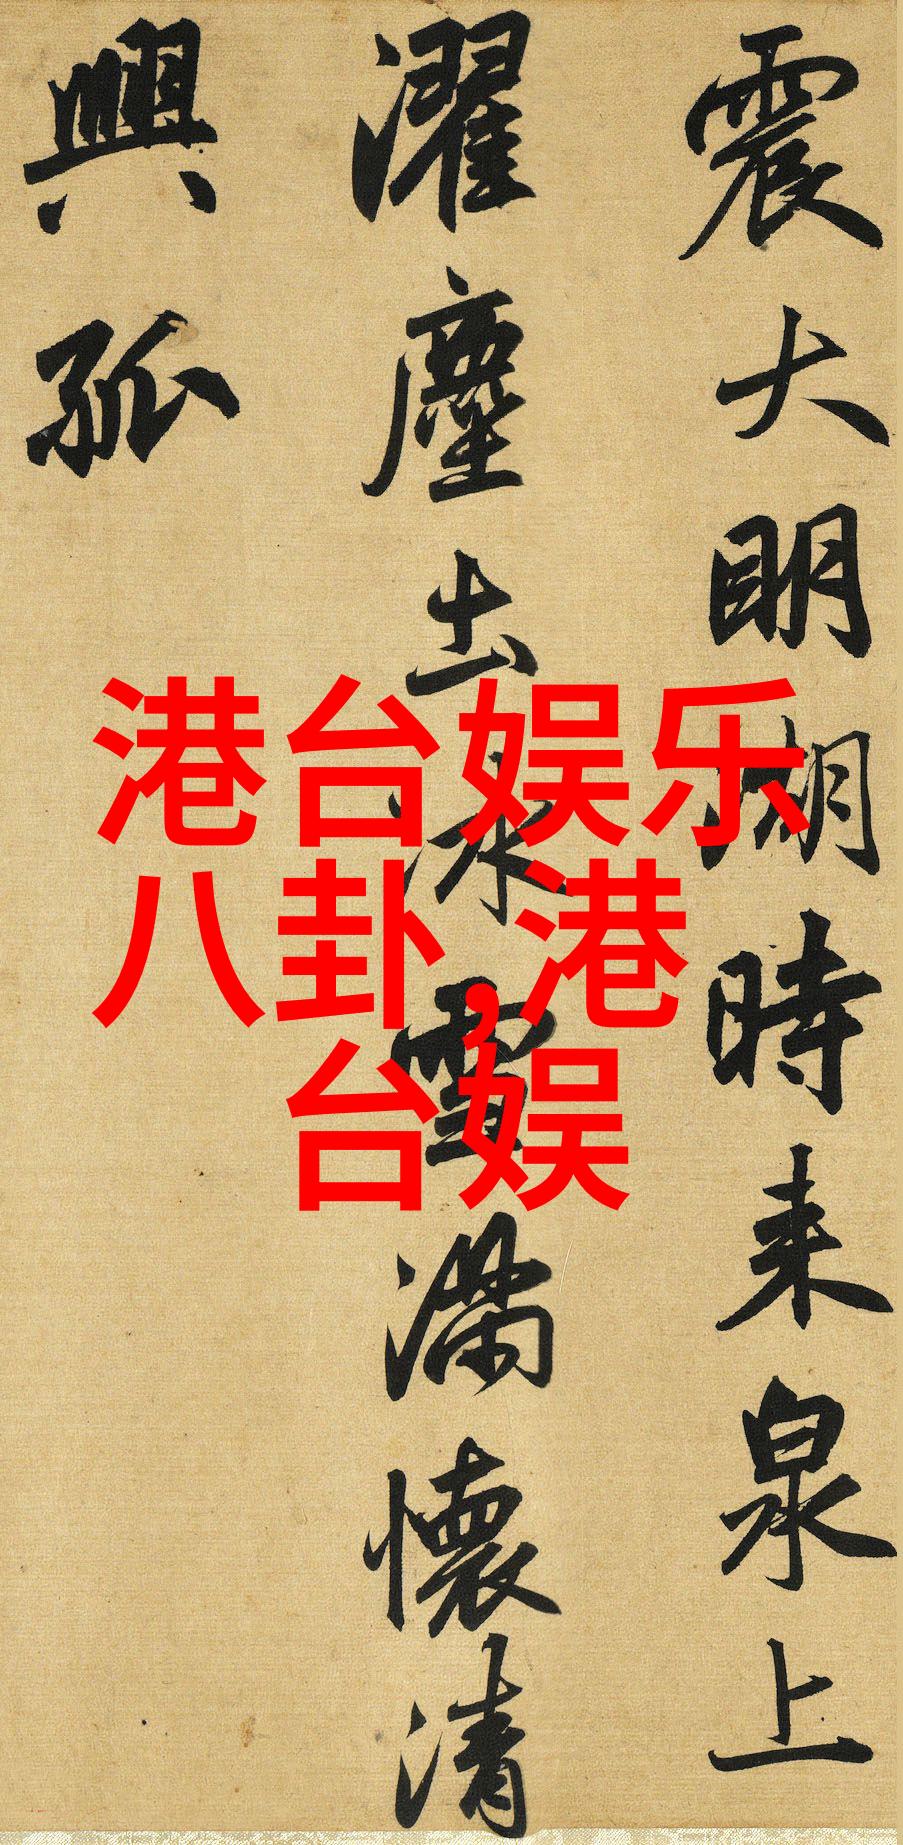 震大明湖時来泉上
濯塵土冰雪满懷清
興孤
港台娱乐
八卦,港
台娱